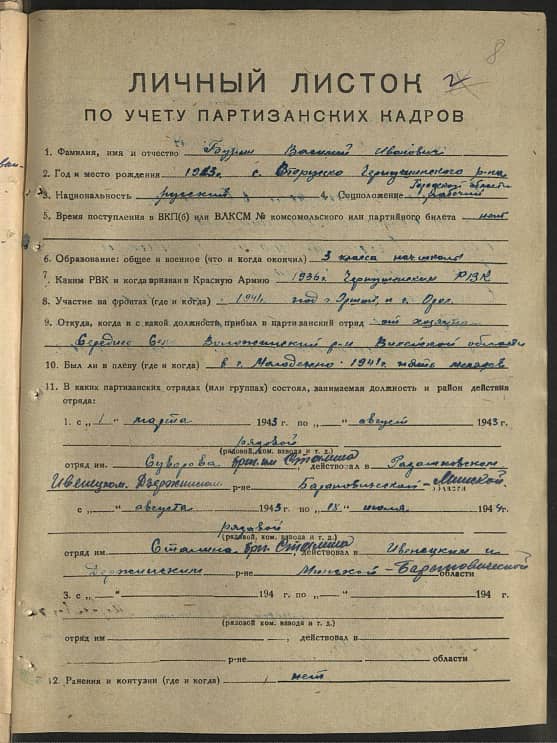 8
ЛИЧНЫЙ ЛИСТОК
ПО УЧЕТУ ПАРТИЗАНСКИХ КАДРОВ
1. Фамилия, имя и отчество Василий Иванович
2. Год и место рождения с. р-на
области
3. Национальность русский 4. Соцположение рабочий
5. Время поступления в ВКП(б) или ВЛКСМ № комсомольского или партийного билета нет
6. Образование: общее и военное (что и когда окончил) 3 класса
7. Каким РВК и когда призван в Красную Армию 1936 г. РВК
8. Участие на фронтах (где и когда) 1941 год г. и г.
9. Откуда, когда и с какой должность, прибыл в партизанский отряд от
Середнее р-н области
10. Был ли в плену (где и когда) в г. Молодечно 1941 г.
11. В каких партизанских отрядах (или группах) состоял, занимаемая должность и район действия
отряда:
1. с „1“ марта 1943 г. по „ “ август 1943 г.
рядовой
(рядовой, ком. взвода и т. д.)
отряд им. Суворова бр. им Сталина, действовал в
Ивенецком, Дзержинском р-не Барановичской-Минской
области
с „ “ августа 1943 г. по „ “ июля 1944 г.
рядовой
(рядовой, ком. взвода и т. д.)
отряд им Сталина бр. Сталина, действовал в Ивенецким и
Дзержинским р-не Минской-Барановической области
3. с „ “ 194 г. по „ “ 194 г.
(рядовой ком. взвода и т. д.)
отряд им , действовал в
р-не области
12. Ранения и контузии (где и когда) нет